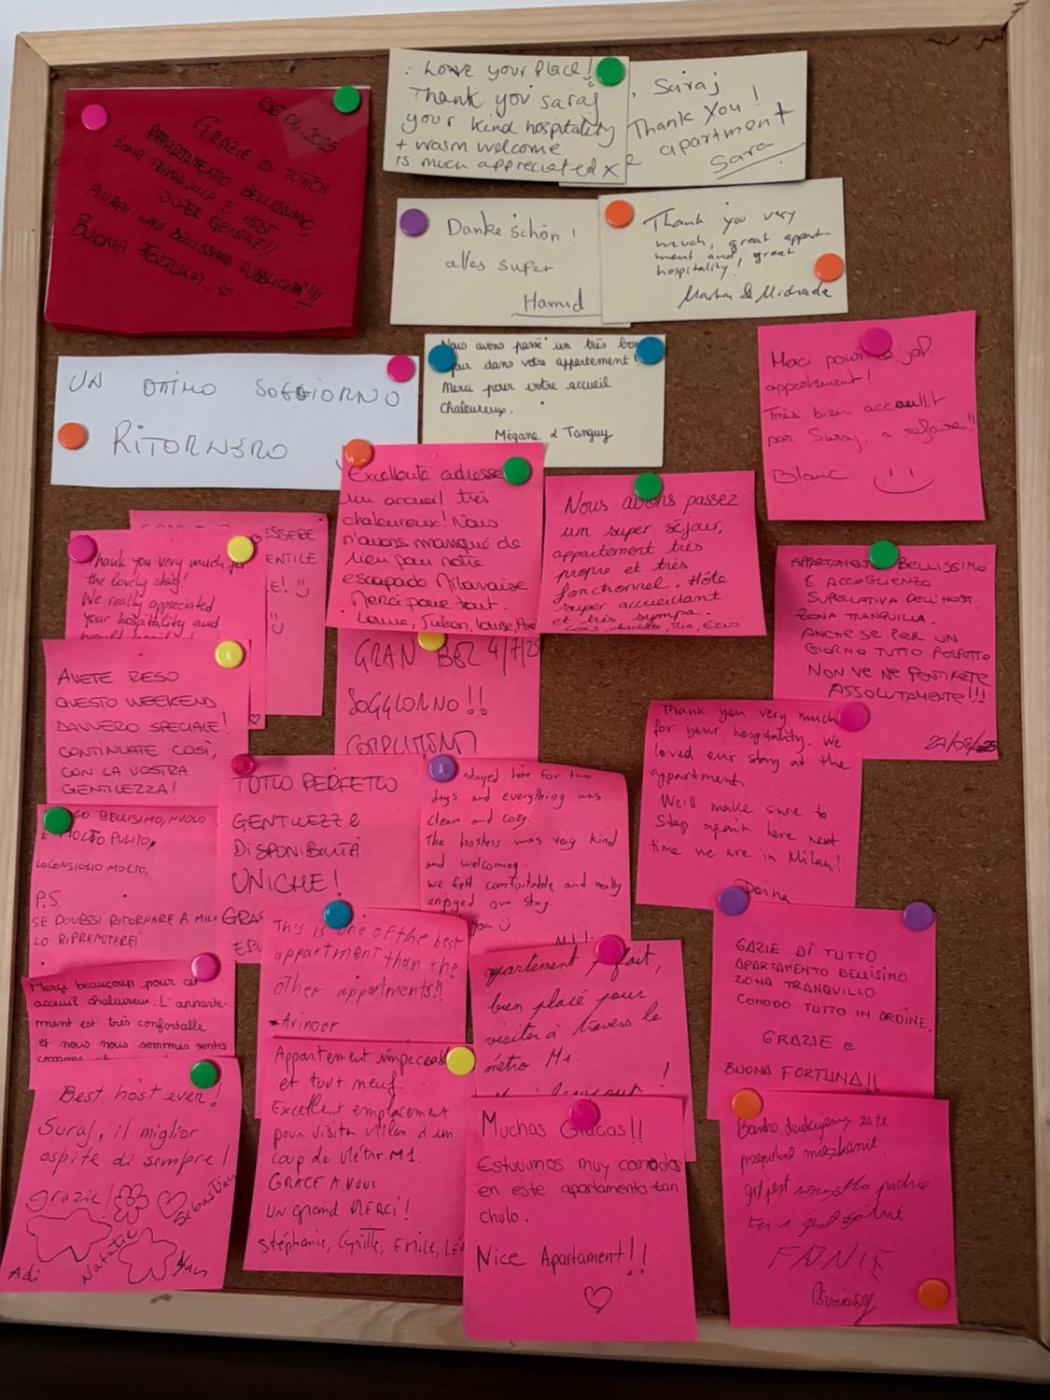 06.04.2025
GRAZIE DI TUTTO!
APPARTAMENTO BELLISSIMO,
ZONA TRANQUILLA E HOST
SUPER GENTILE!!
AVRAI UNA BELLISSIMA PUBBLICITÀ!!!!
BUONA FORTUNA.. ♡
Love your place!
Thank you saraj
your kind hospitality
+ warm welcome
is much appreciated x
Saraj
Thank you!
apartment
Sara
Danke schön!
alles super
Hamid
Thank you very
much, great appart-
ment and, great
hospitality!
UN OTTIMO SOGGIORNO
RITORNERO
Nous avons passé un très bon
dans votre appartement!
Merci pour votre accueil
Chaleureux.
Mégane & Tanguy
Merci pour
appartement!
Très bien accueillit
par Suraj, à refaire!!
Blanc
Excellente adresse
un accueil très
chaleureux! Nous
n'avons manqué de
rien pour notre
escapade Milanaise
Merci pour tout.
Nous avons passez
un super séjour,
appartement très
propre et très
fonctionnel. Hôte
super accueillant
et très sympa.
ESSERE
ENTILE
E! :)
:)
Thank you very much for
the lovely stay!
We really appreciated
your hospitality and
APPARTAMENTO BELLISSIMO
E ACCOGLIENZA
SUPERLATIVA DELL'HOST.
ZONA TRANQUILLA.
ANCHE SE PER UN
GIORNO TUTTO PERFETTO
NON VE NE PENTIRETE
ASSOLUTAMENTE!!!
AVETE RESO
QUESTO WEEKEND
DAVVERO SPECIALE!
CONTINUATE COSÌ,
CON LA VOSTRA
GENTILEZZA!
GRAN BEL 4/7/25
SOGGIORNO!!
Thank you very much
for your hospitality. We
loved our stay at the
appartment.
We'll make sure to
stop again here next
time we are in Milan!
TUTTO PERFETTO
GENTILEZZE
DISPONIBILITÀ
UNICHE!
stayed here for two
days and everything was
clean and cosy.
The hostess was very kind
and welcoming.
we felt comfortable and really
enjoyed our stay.
BELLISSIMO, NUOVO
E MOLTO PULITO,
LOCONSIGLIO MOLTO.
P.S.
SE DOVESSI RITORNARE A
LO RIPRENOTEREI
This is one of the best
appartment than the
other appartments!!
- Avinoor
parfait,
bien placé pour
visiter à travers le
métro M1.
GAZIE DI TUTTO
APARTAMENTO BELLISIMO
ZONA TRANQUILLO
COMODO TUTTO IN ORDINE.
GRAZIE e
BUONA FORTUNA!!
Merci beaucoup pour cet
accueil chaleureux. L'apparte-
ment est très confortable
et nous nous sommes sentis
Best host ever!
Suraj, il miglior
ospite di sempre!
grazie!
Sebastian
Natalie
Adi
Appartement impeccable
et tout neuf.
Excellent emplacement
pour visiter Milan d'un
coup de Métro M1.
GRACE A VOUS
UN grand MERCI!
Stéphanie, Cyrille, Emilie,
Muchas Gracias!!
Estuvimos muy comodos
en este apartamento tan
chulo.
Nice Apartament!!
♡
Bardzo dziękujemy za te